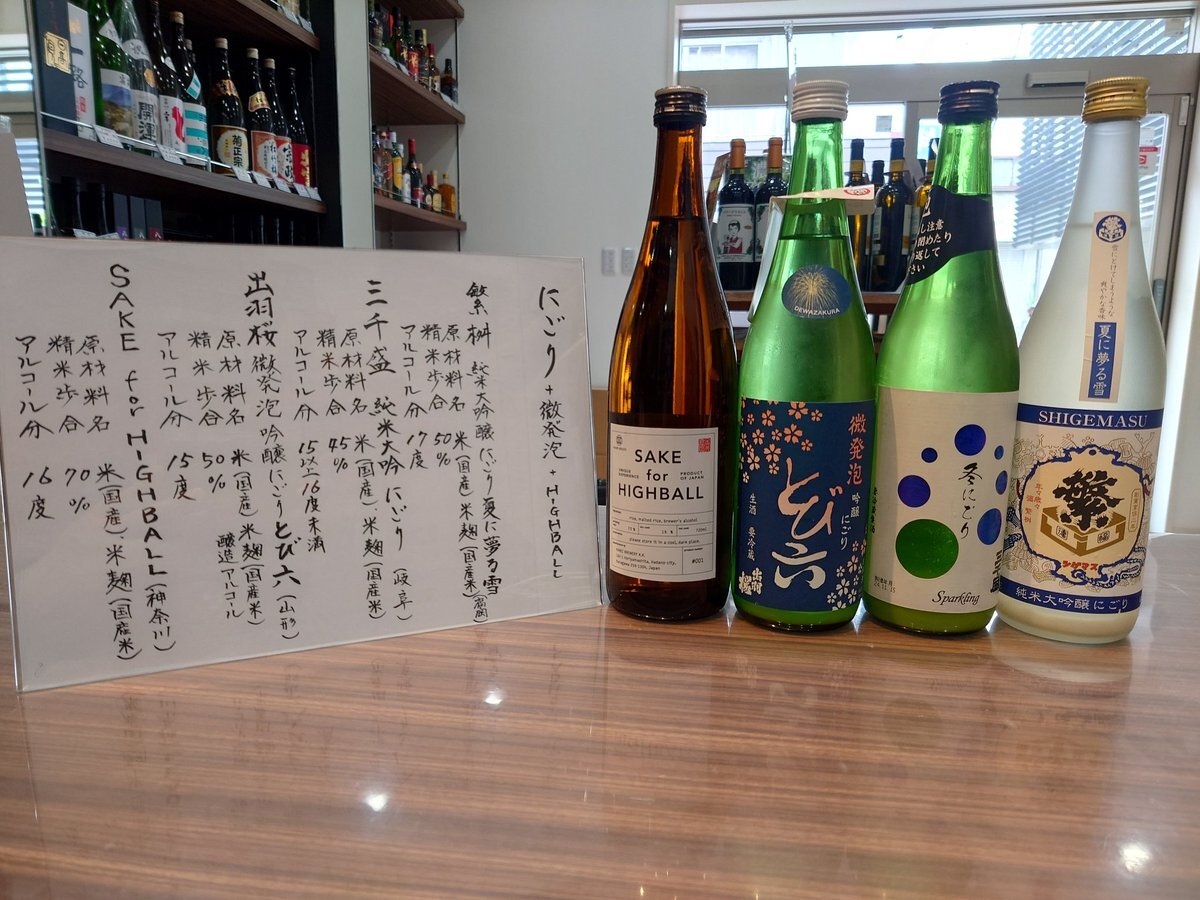 にごり+微発泡+HIGHBALL
繁桝 純米大吟醸にごり夏に夢る雪
原材料名 米(国産)、米麹(国産米)(福岡)
精米歩合 50%
アルコール分 17度
三千盛 純米大吟 にごり (岐阜)
原材料名 米(国産)、米麹(国産米)
精米歩合 45%
アルコール分 15以上16度未満
出羽桜 微発泡吟醸にごりとび六(山形)
原材料名 米(国産)米麹(国産米)醸造アルコール
精米歩合 50%
アルコール分 15度
SAKE for HIGHBALL(神奈川)
原材料名 米(国産)、米麹(国産米)
精米歩合 70%
アルコール分 16度
SAKE
for
HIGHBALL
UNIQUE
EXPERIENCE
PRODUCT
OF JAPAN
rice, malted rice, brewer's alcohol
720ml
please store it in a cool, dark place.
#001
DEWAZAKURA
微発泡
吟醸
にごり
とび六
生酒 要冷蔵
出羽桜
冬にごり
Sparkling
雪にとけてしまうような
爽やかな香味
夏に夢る雪
SHIGEMASU
繁
シゲマス
純米大吟醸にごり
開運
菊正宗